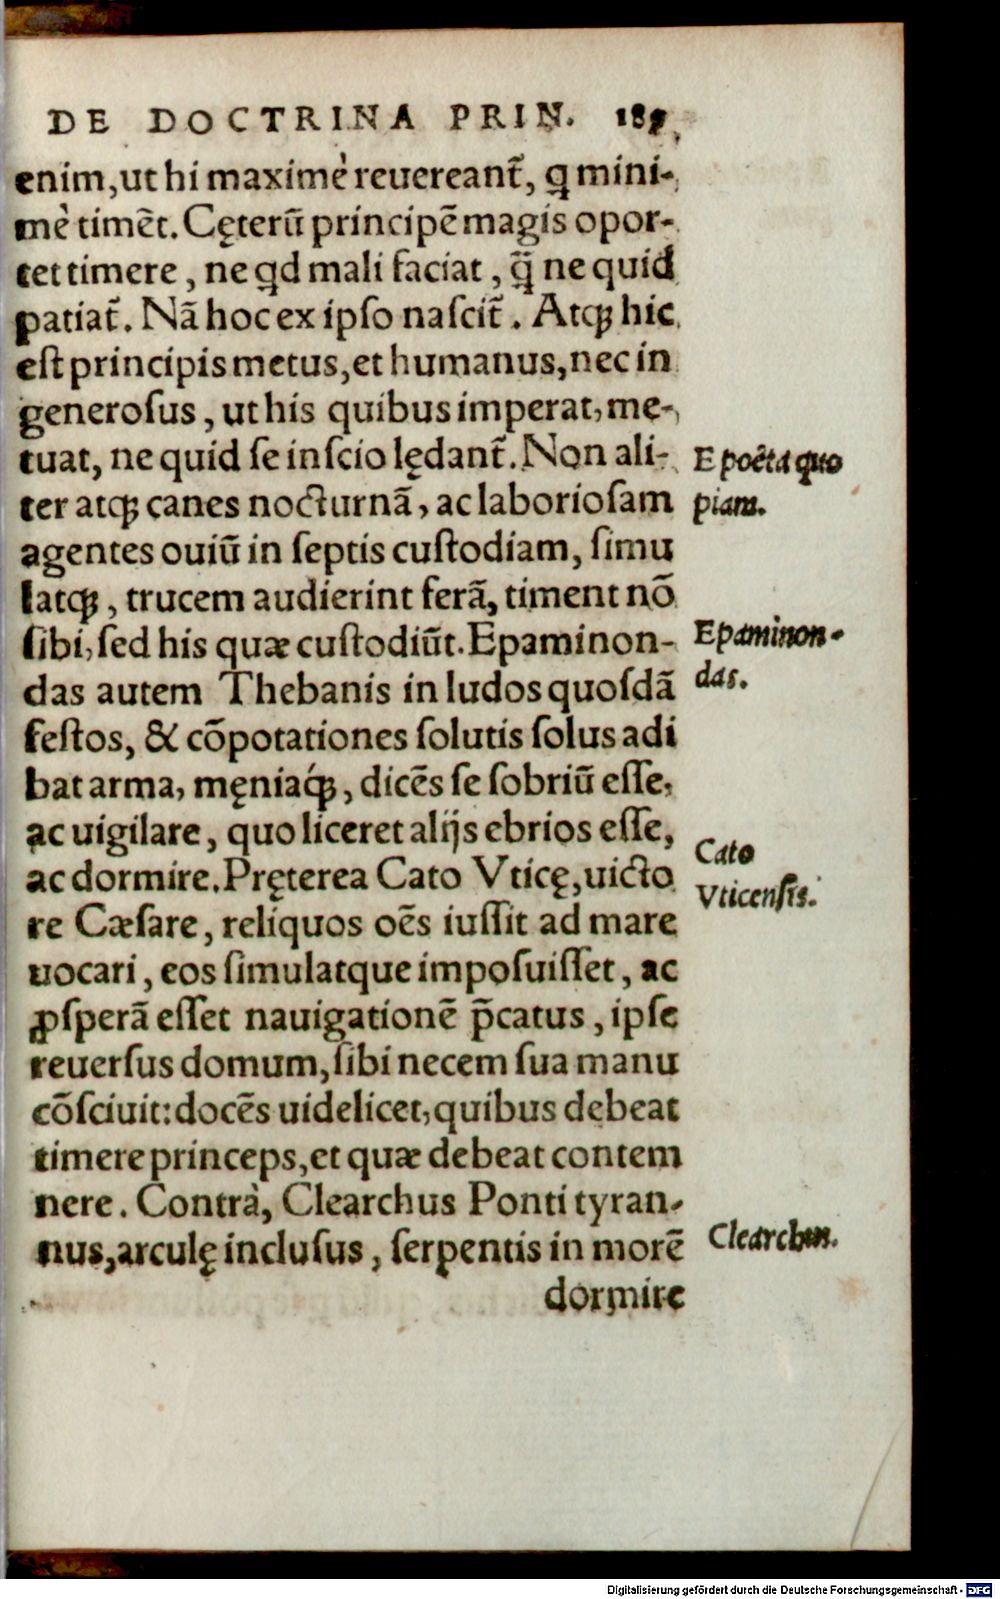 DE DOCTRINA PRIN. 189
enim, ut hi maximè reuereant̃, ꝗ mini-
mè timẽt. Cęterũ principẽ magis opor-
tet timere, ne ꝗd mali faciat, ꝗ̃ ne quid
patiat̃. Nã hoc ex ipſo naſcit̃. Atqꝫ hic
eſt principis metus, et humanus, nec in
generoſus, ut his quibus imperat, me-
tuat, ne quid ſe inſcio lędant̃. Non ali-
ter atqꝫ canes nocturnã, ac laborioſam
agentes ouiũ in ſeptis cuſtodiam, ſimu
latqꝫ, trucem audierint ferã, timent nõ
ſibi, ſed his quæ cuſtodiũt. Epaminon-
das autem Thebanis in ludos quoſdã
feſtos, & cõpotationes ſolutis ſolus adi
bat arma, męniaq́ꝫ, dicẽs ſe ſobriũ eſſe,
ac uigilare, quo liceret alijs ebrios eſſe,
ac dormire. Pręterea Cato Vticę, uicto
re Cæſare, reliquos oẽs iuſſit ad mare
uocari, eos ſimulatque impoſuiſſet, ac
ꝓſperã eſſet nauigationẽ p̃catus, ipſe
reuerſus domum, ſibi necem ſua manu
cõſciuit: docẽs uidelicet, quibus debeat
timere princeps, et quæ debeat contem
nere. Contrà, Clearchus Ponti tyran-
nus, arculę incluſus, ſerpentis in morẽ
dormire
E poêta quo
piam.
Epaminon-
das.
Cato
Vticenſis.
Clearchus.
Digitalisierung gefördert durch die Deutsche Forschungsgemeinschaft - DFG